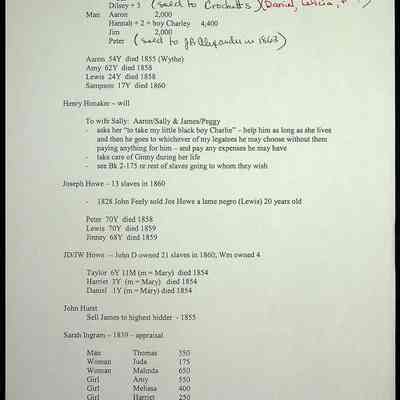 Dilsey + 3 (sold to Crocketts) (Daniel, Leticia,
Man: Aaron 2,000
Hannah + 2 + boy Charley 4,400
Jim 2,000
Peter (sold to JB Alexander in 1863)
Aaron 54Y died 1855 (Wythe)
Amy 62Y died 1858
Lewis 24Y died 1858
Sampson 17Y died 1860
Henry Honaker – will
To wife Sally: Aaron/Sally & James/Peggy
- asks her "to take my little black boy Charlie" – help him as long as she lives
and then he goes to whichever of my legatees he may choose without them
paying anything for him – and pay any expenses he may have
- take care of Ginny during her life
- see Bk 2-175 re rest of slaves going to whom they wish
Joseph Howe – 13 slaves in 1860
- 1828 John Feely sold Jos Howe a lame negro (Lewis) 20 years old
Peter 70Y died 1858
Lewis 70Y died 1859
Jinney 68Y died 1859
JD/JW Howe – John D owned 21 slaves in 1860; Wm owned 4
Taylor 6Y 11M (m = Mary) died 1854
Harriet 3Y (m = Mary) died 1854
Daniel 1Y (m = Mary) died 1854
John Hurst
Sell James to highest bidder - 1855
Sarah Ingram – 1839 – appraisal
Man Thomas 550
Woman Juda 175
Woman Malinda 650
Girl Amy 550
Girl Melissa 400
Girl Harriet 250